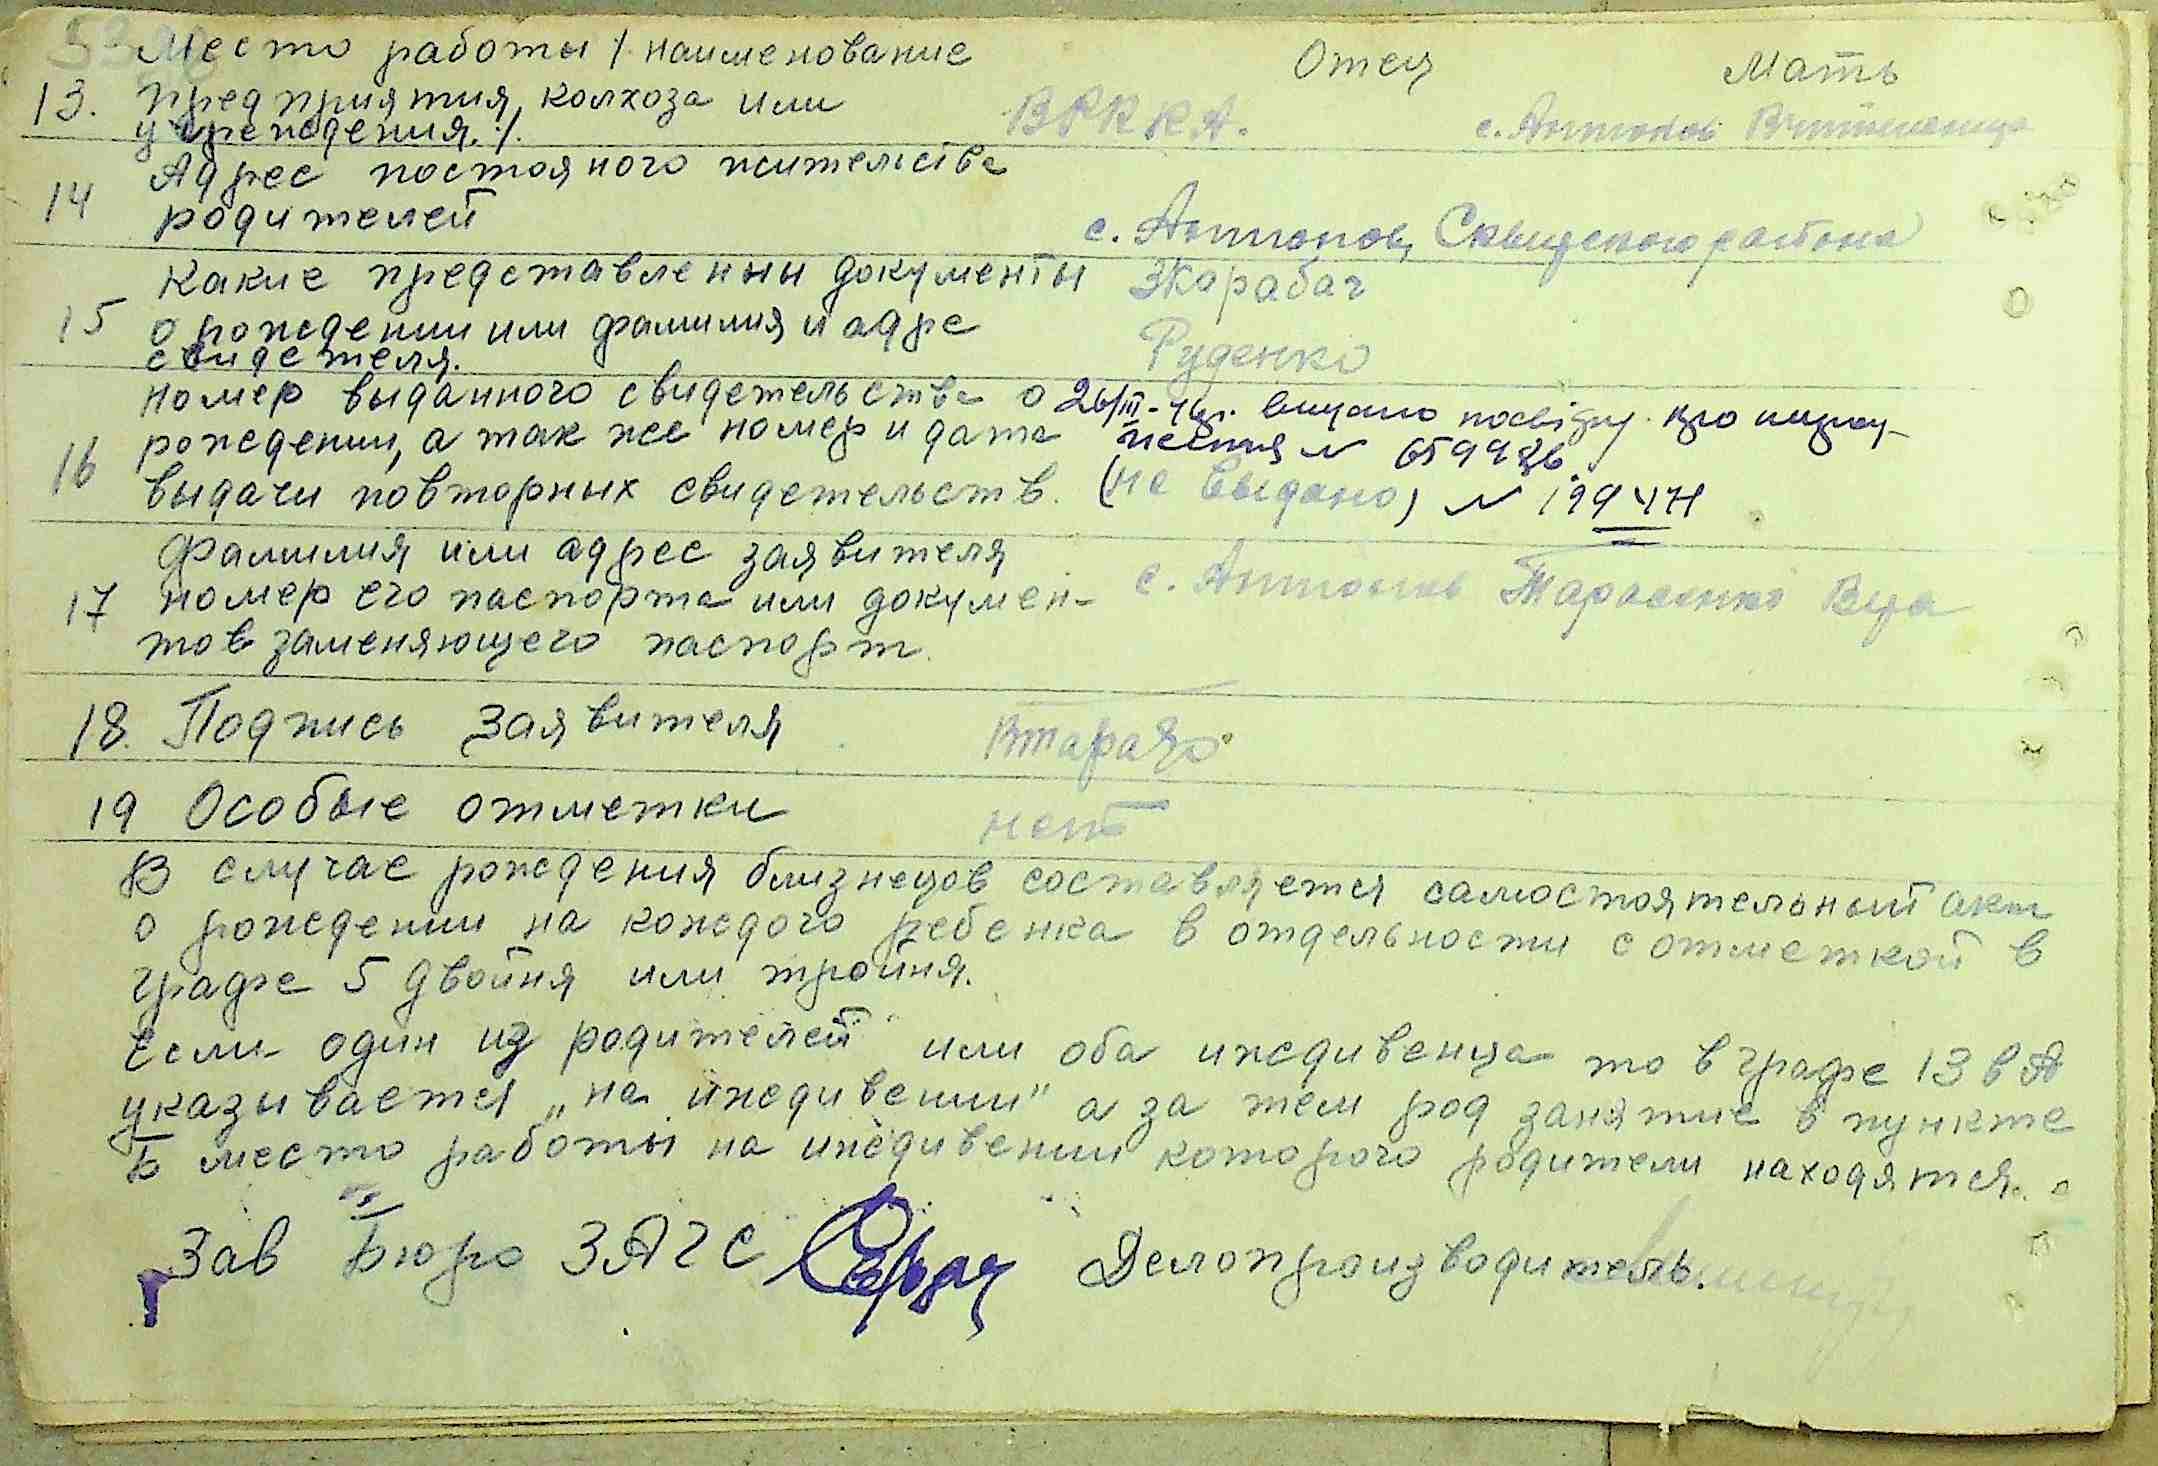 Место работы /. наименование Отец Мать
13. предприятия, колхоза или В РККА. с. Антонов
учреждения. /.
Адрес постояного жительства
14 родителей с. Антонов, Сквирского района
Какие представленны документы
15 о рождении или фамилия и адре Руденко
свидетеля.
номер выданного свидетельства о 26/III-
рождении, а так же номер и дата №
16 выдачи повторных свидетельств. (не выдано) №
Фамилия или адрес заявителя
17 номер его паспорта или докумен- с. Антонов Тарасенко Вера
тов заменяющего паспорт.
18. Подпись заявителя
19 Особые отметки нет
В случае рождения близнецов составляется самостоятельный акт
о рождении на кождого ребенка в отдельности с отметкой в
графе 5 двойня или тройня.
Если один из родителей или оба иждивенца то в графе 13 в А
указывается „на иждивении" а за тем род занятие в пункте
Б место работы на иждивении которого родители находятся.
Зав Бюро ЗАГС Делопроизводитель.